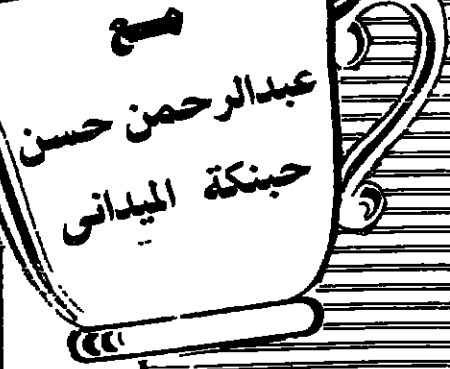 مع
عبدالرحمن حسن
حبنكة الميدانى